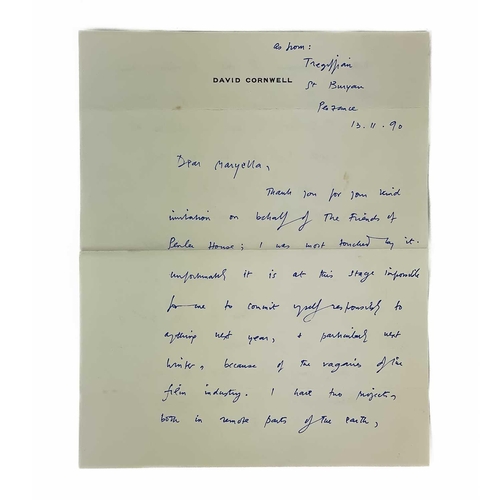 as from:
Tregiffian
DAVID CORNWELL
St Buryan
Penzance
13.11.90
Dear Maryella,
Thank you for your kind
invitation on behalf of The Friends of
Penlee House; I was most touched by it.
Unfortunately it is at this stage impossible
for me to commit myself responsibly to
anything next year, & particularly next
Winter, because of the vagaries of the
film industry. I have two projects
both in remote parts of the earth,